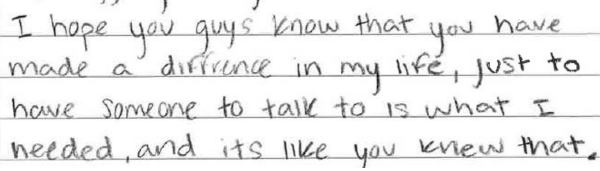 I hope you guys know that you have
made a diffrence in my life, just to
have someone to talk to is what I
needed, and its like you knew that.